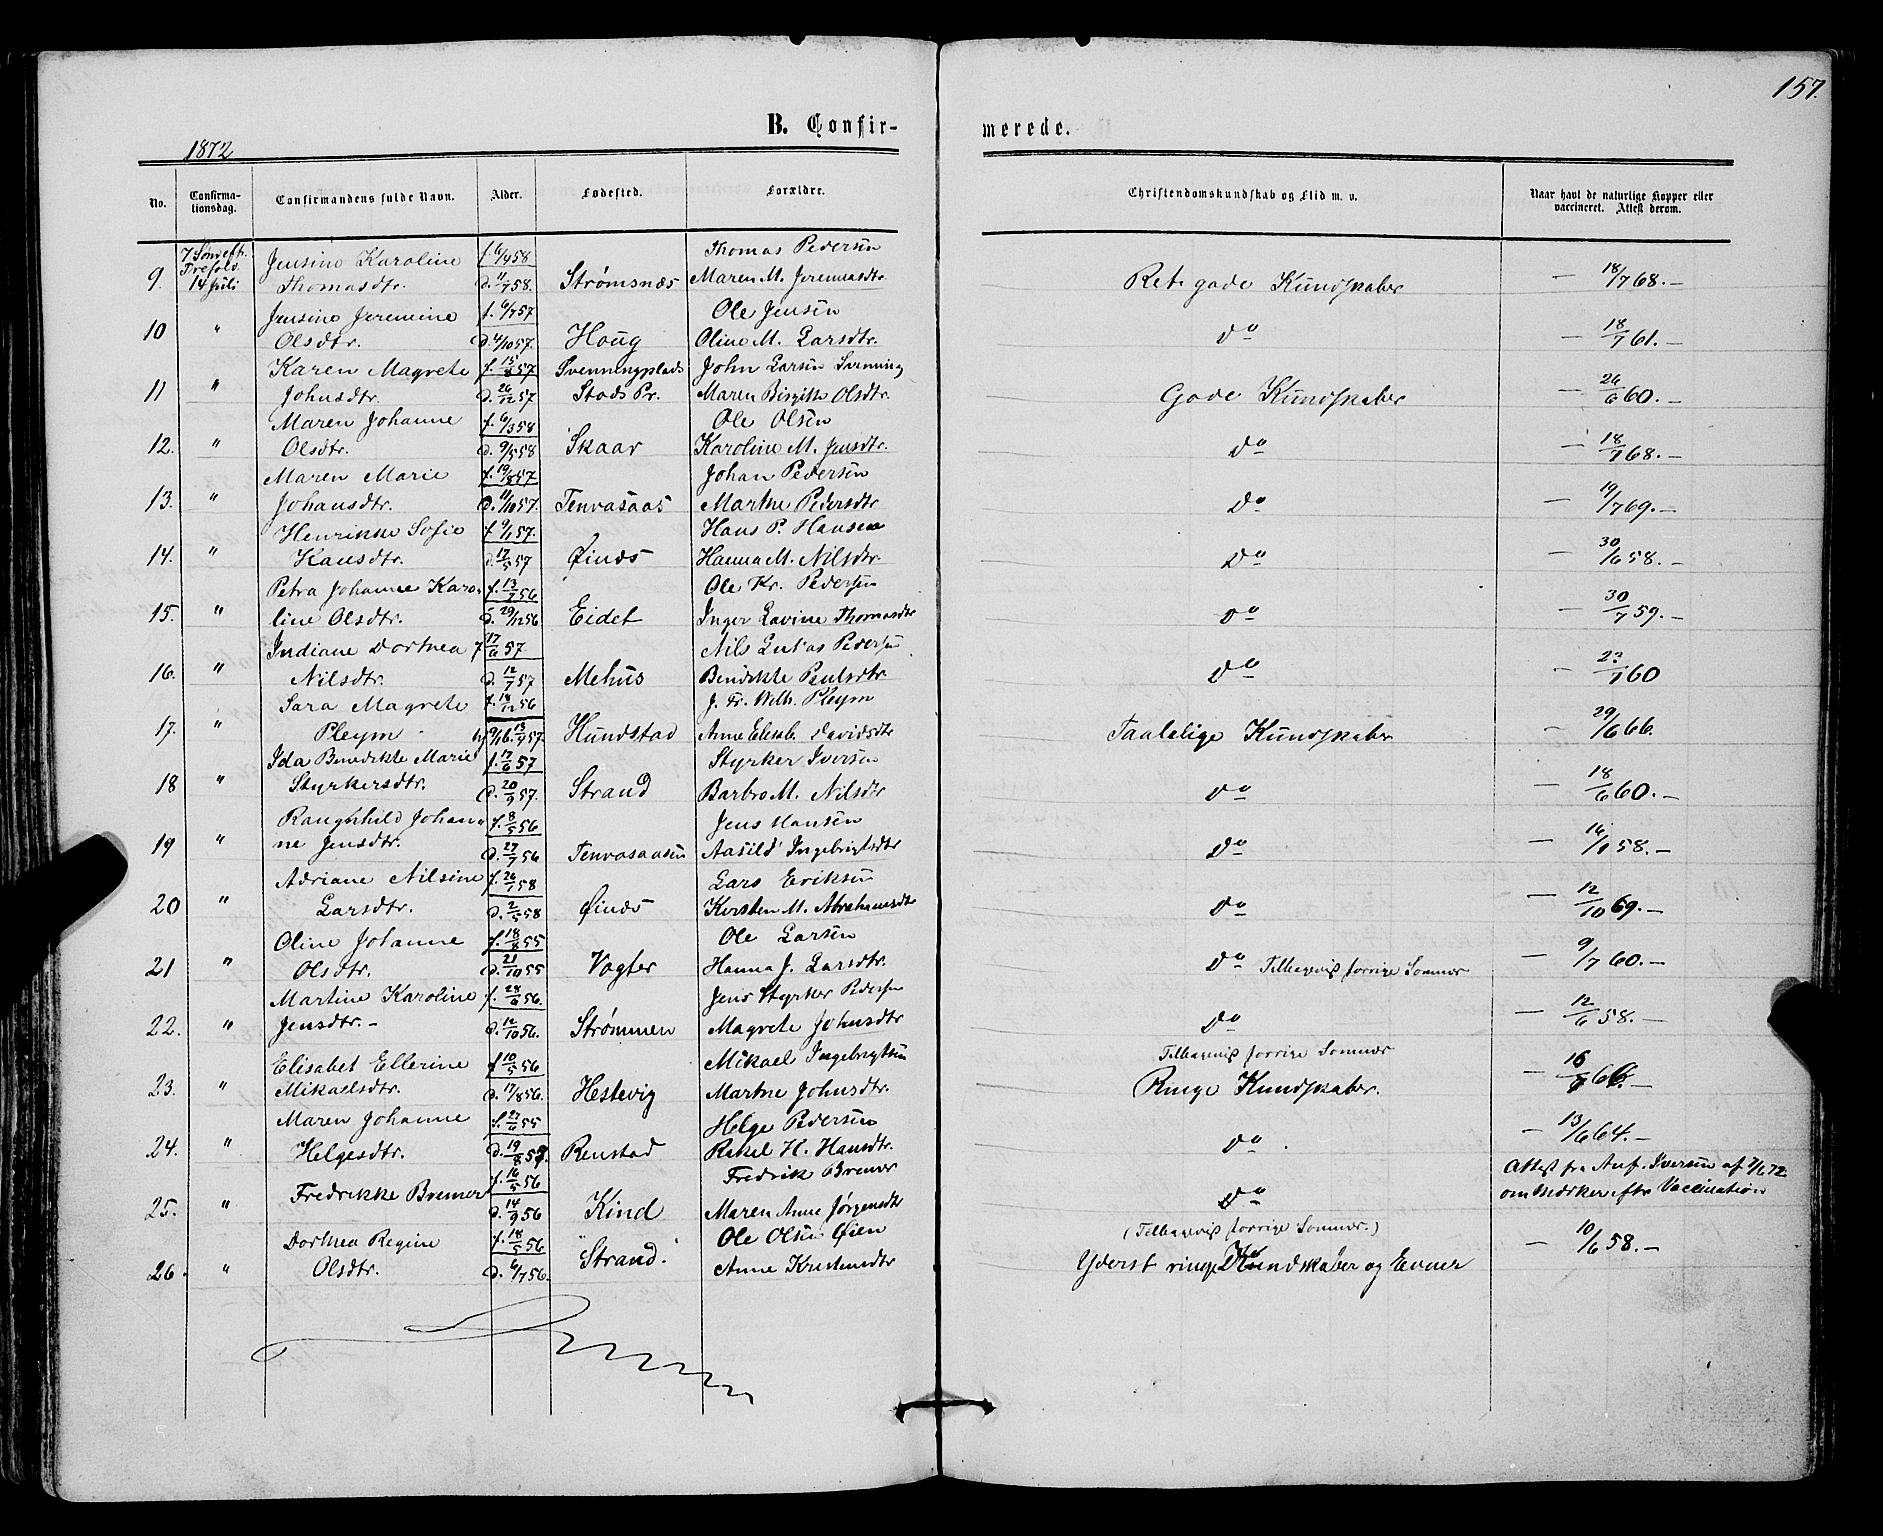 157.
B. Confir-
merede.
1872
No.
Confirma-
tionsdag.
Confirmandens fulde Navn.
Alder.
Fødested.
Forældre.
Christendomskundskab og Flid m. v.
Naar havt de naturlige Kopper eller
vaccineret. Attest derom.
7 Trefold.
14 Juli
Jensine Karoline f. 6/4 58 Thomas Pedersen
9. Thomasdtr. d. 11/7 58. Strømsnæs Maren M. Jeremiasdtr. Ret gode Kundskaber — 18/7 68. —
Jensine Jeremine f. 6/7 57 Ole Jensen
10 " Olsdtr. d. 4/10 57. Houg Oline M. Larsdtr. do — 18/7 61. —
Karen Magrete f. 15/8 57 Svenningplads John Larsen Svenning
11 " Johnsdtr. d. 26/12 57 Stods Pr. Maren Birgitte Olsdtr. Gode Kundskaber — 26/6 60. —
Maren Johanne f. 6/3 58 Ole Olsen
12. " Olsdtr. d. 9/5 58 Skaar Karoline M. Jensdtr. do — 18/7 68. —
Maren Marie f. 19/8 57 Johan Pedersen
13. " Johansdtr. d. 11/10 57. Tenvasaas Marthe Pedersdtr do — 19/7 69. —
Henrikke Sofie f. 9/1 57. Hans P. Hansen
14. " Hansdtr. d. 17/5 57 Øinæs Hanna M. Nilsdtr. do — 30/6 58. —
Petra Johanne Karo- f. 13/7 56 Ole Kr. Pedersen
15. " line Olsdtr. d. 29/12 56 Eidet Inger Lavine Thomasdtr do — 30/7 59. —
Indiane Dorthea f 17/6 57 Nils Lukas Pedersen
16. " Nilsdtr. d. 12/7 57 Mehus Bendikte Paulsdtr. do — 60
Sara Magrete f. 14/12 56 J. Fr. Wilh. Pleym
17. " Pleym 13/4 57. Hundstad Anne Elisab. Davidsdtr Taalelige Kundskaber — 29/6 66.
Ida Benedikte Marie f. 17/6 57 Styrker Iversen
18 " Styrkersdtr. d. 20/9 57. Strand Barbro M. Nilsdtr do — 18/6 60. —
Raughild Johan- f. 8/5 56 Jens Hansen
19 " ne Jensdtr. d. 27/7 56 Tenvasaasen Aasild Ingebrigtsdtr do — 58. —
Adriane Nilsine f. 26/1 58 Lars Eriksen
20 " Larsdtr. d. 2/5 58 Øinæs Kirsten M. Abrahamsdtr do — 12/10 69. —
Oline Johanne f. 18/8 55 Ole Larsen
21 " Olsdtr. d. 21/10 55 Vagter Hanna J. Larsdtr. do Tilbagevist forrige Sommer — 9/7 60. —
Martine Karoline f. 28/6 56. Jens Styrker Pedersen
22. " Jensdtr. - d. 12/10 56. Strømmen Magrete Johnsdtr do — 12/6 58. —
Elisabet Ellerine f 10/5 56 Mikael Ingebrigtsen Tilbagevist forrige Sommer
23. " Mikaelsdtr. d. 17/8 56. Hestevig Marthe Johnsdtr. Ringe Kundskaber. — 66. —
Maren Johanne f. 27/6 55 Helge Pedersen
24. " Helgesdtr. d. 19/8 Renstad Rakel H. Hansdtr. do — 13/6 64. —
f. 16/5 56 Fredrik Bremer Attest fra Iversen af 7/6 72
25. " Fredrikke Bremer d. 14/9 56 Kind Maren Anne Jørgensdtr do om Mærker efter Vaccination
Dorthea Regine f. 18/5 56 Ole Olsen Øien (Tilbagevist forrige Sommer.)
26. " Olsdtr. d. 6/7 56. Strand. Anne Kristensdtr Yderst ringe Kundskaber og Evner — 10/6 58. —